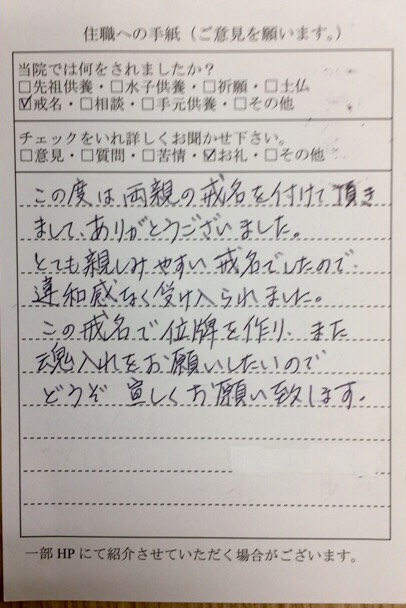 住職への手紙（ご意見を願います。）
当院では何をされましたか？
□先祖供養・□水子供養・□祈願・□土仏
☑戒名・□相談・□手元供養・□その他
チェックをいれ詳しくお聞かせ下さい。
□意見・□質問・□苦情・☑お礼・□その他
この度は両親の戒名を付けて頂き
まして、ありがとうございました。
とても親しみやすい戒名でしたので
違和感なく受け入られました。
この戒名で位牌を作り、また
魂入れをお願いしたいので
どうぞ宜しくお願い致します。
一部HPにて紹介させていただく場合がございます。